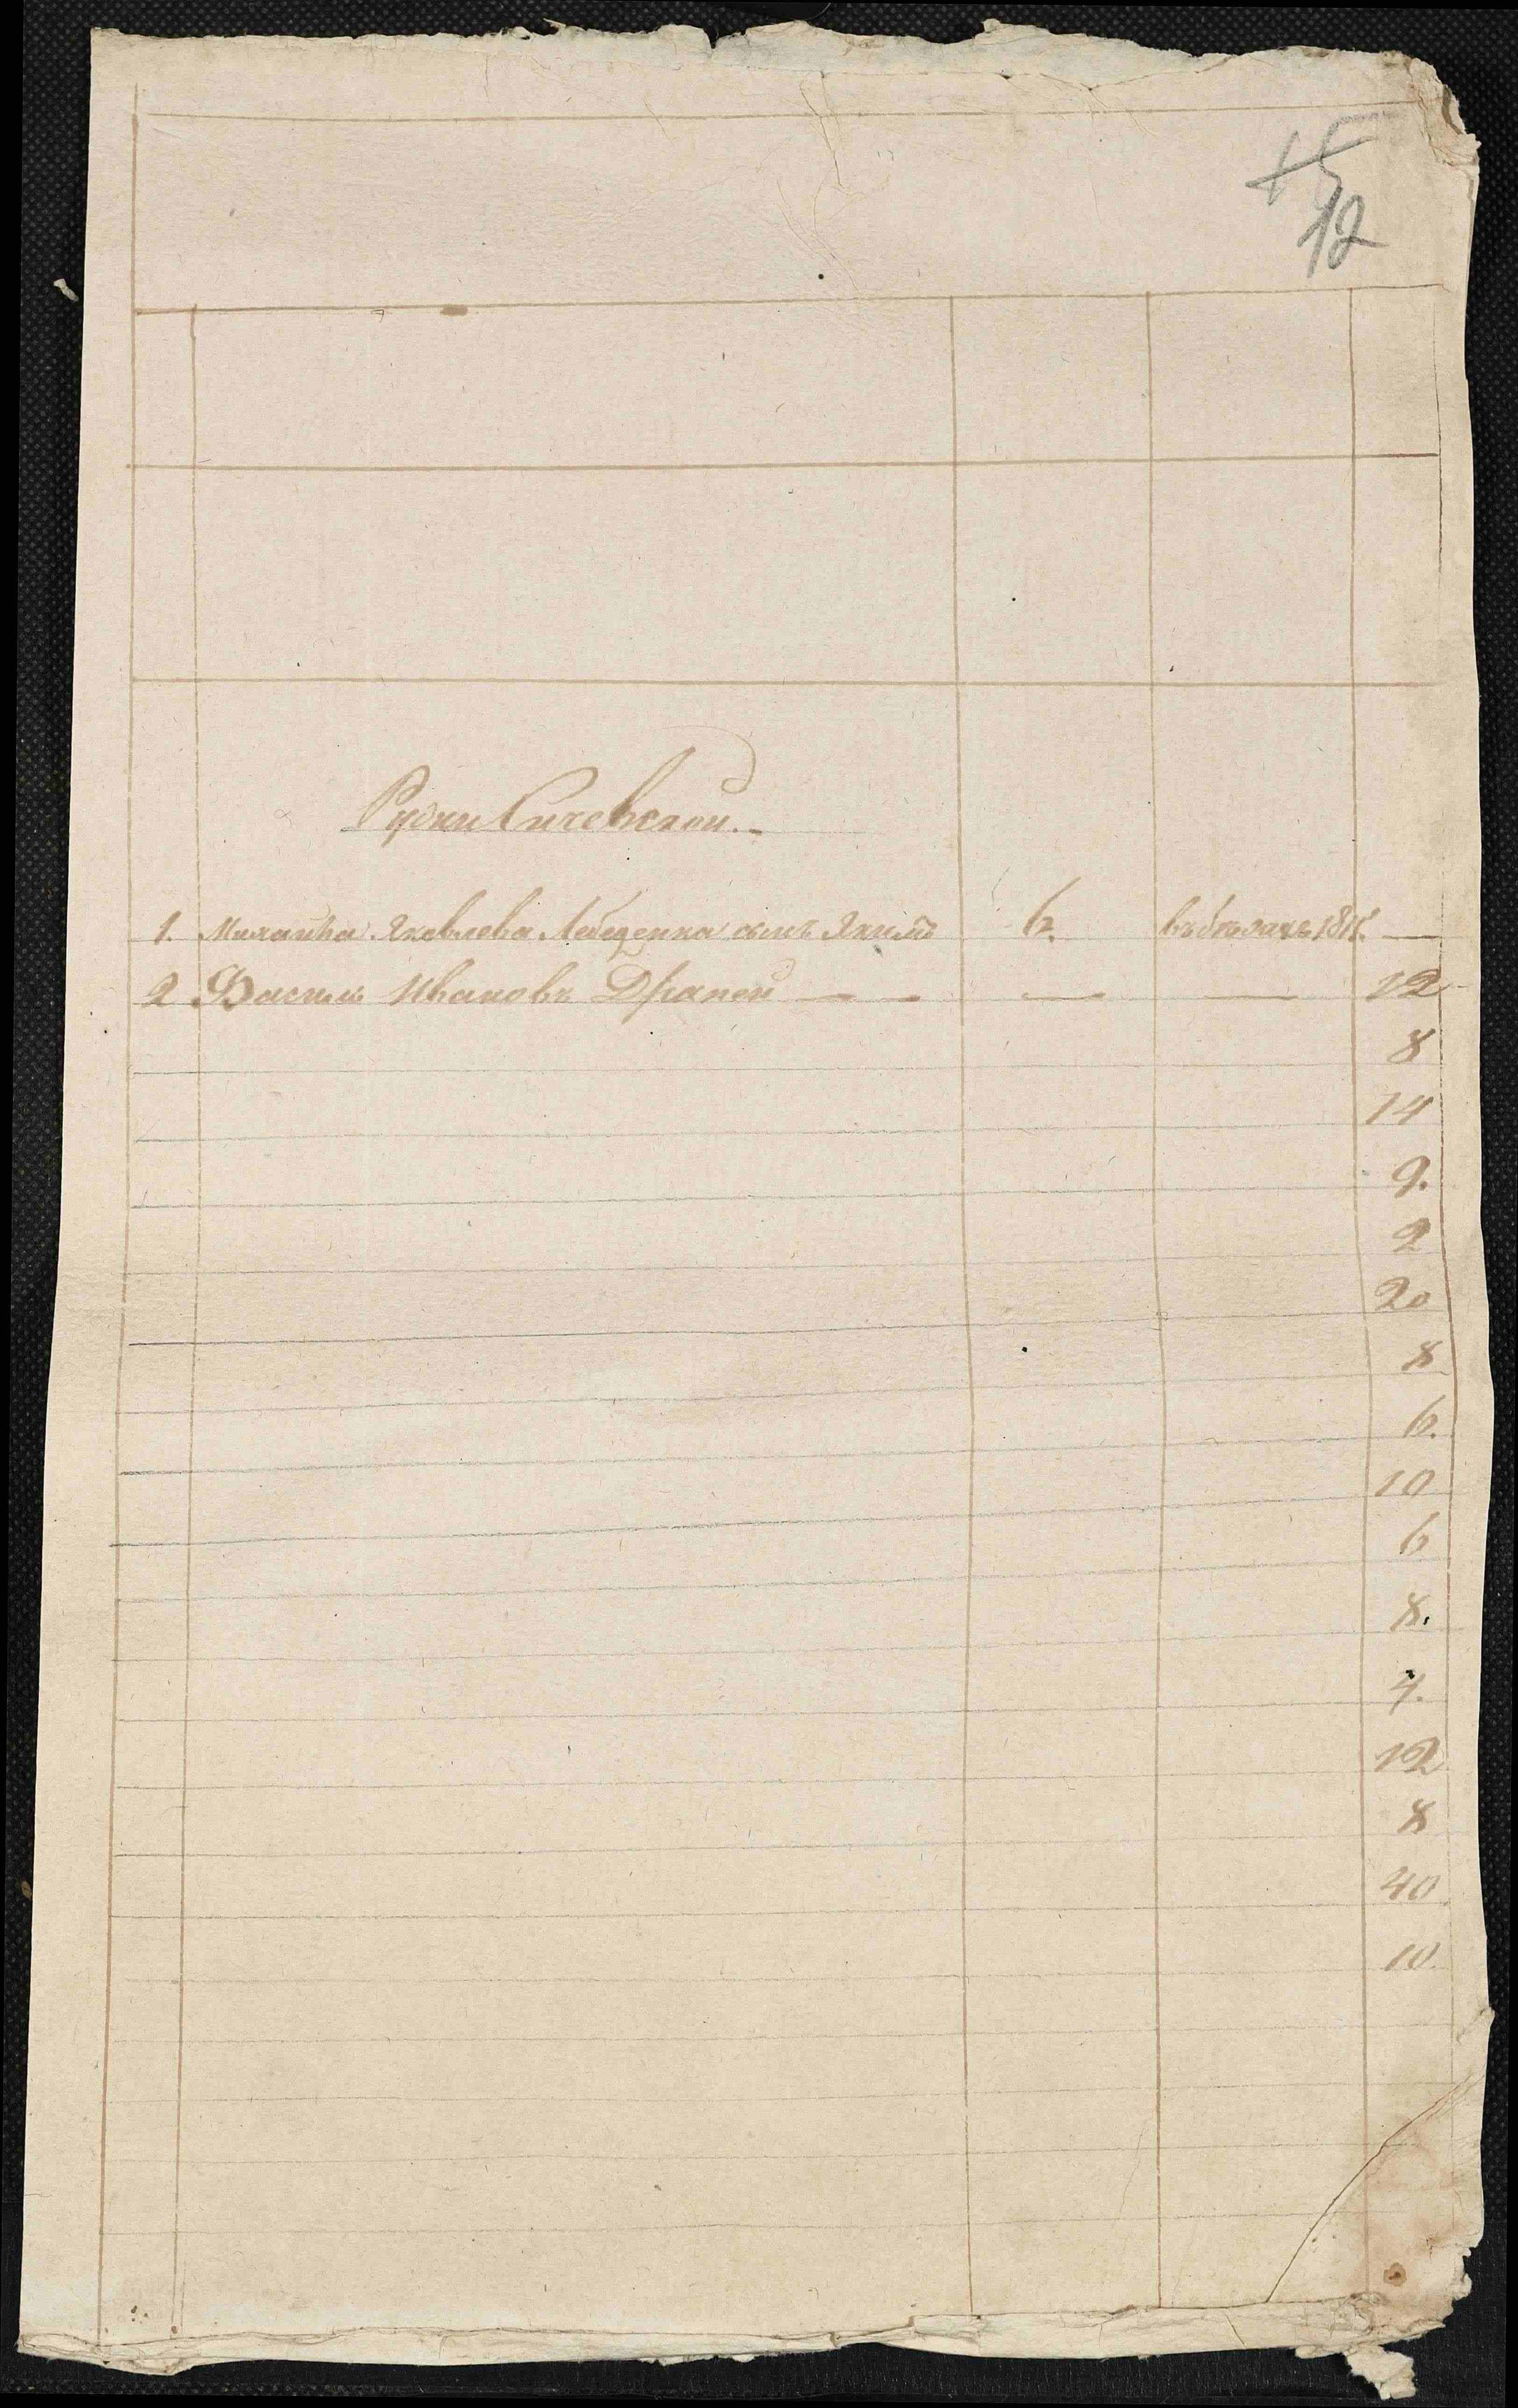 15
12
Рудки Сичевской.
1. Михайла Яковлева Лебеденка сынъ Якимъ 6. въ бѣгахъ —
2 Василь Ивановъ Драпей — — — — 12
8
14
9.
2
20
8
6.
10
6
8.
4.
12
8
40
10.